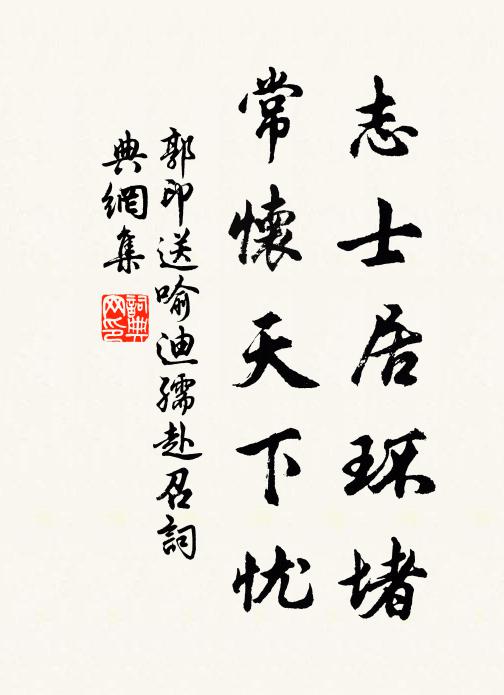 志士居环堵
常懷天下忧
郭印送喻迪孺赴召詞
典網集
詞典网印